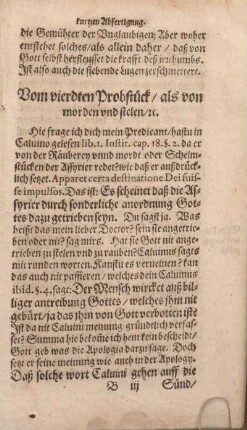 kurtzen Abfertigung.
die Gemühter der Vnglaubigen; Aber woher
entstehet solches/als allein daher / daß von
Gott selbst herfleusset die krafft deß irrthumbs.
Ist also auch die siebende Lugen zerschmettert.
Vom vierdten Probstück / als von
morden vnd stelen/ꝛc.
Hie frage ich dich mein Predicant/hastu in
Caluino gelesen lib. 1. Instit. cap. 18. §. 2. da er
von der Räuberey vnnd mordt oder Schelm-
stücken der Assyrier redet? wie daß er außdrück-
lich setzet. Apparet certa destinatione Dei fuis-
se impulsos. Das ist: Es scheinet daß die As-
syrier durch sonderliche anordnung Got-
tes dazu getrieben seyn. Du sagst ja. Was
heist das mein lieber Doctor? sein sie angetrie-
ben oder nit? sag mirs. Hat sie Gott nit ange-
trieben zu stelen vnd zu rauben? Caluinus sagts
mit runden worten. Kanstu es verneinen? kan
das auch nit passieren / welches dein Caluinus
ibid. §. 4. sagt: Der Mensch wircket auß bil-
liger antreibung Gottes / welches jhm nit
gebürt/ja das jhm von Gott verbotten ist
Ist da mit Caluini meinung gründtlich verfas-
set? Summa hie bekome ich heut kein bescheidt/
Gott geb was die Apologia darzu sage. Doch
setzt er seine meinung wie auch in der Apology.
Daß solche wort Caluini gehen auff die
B iij Sünd/